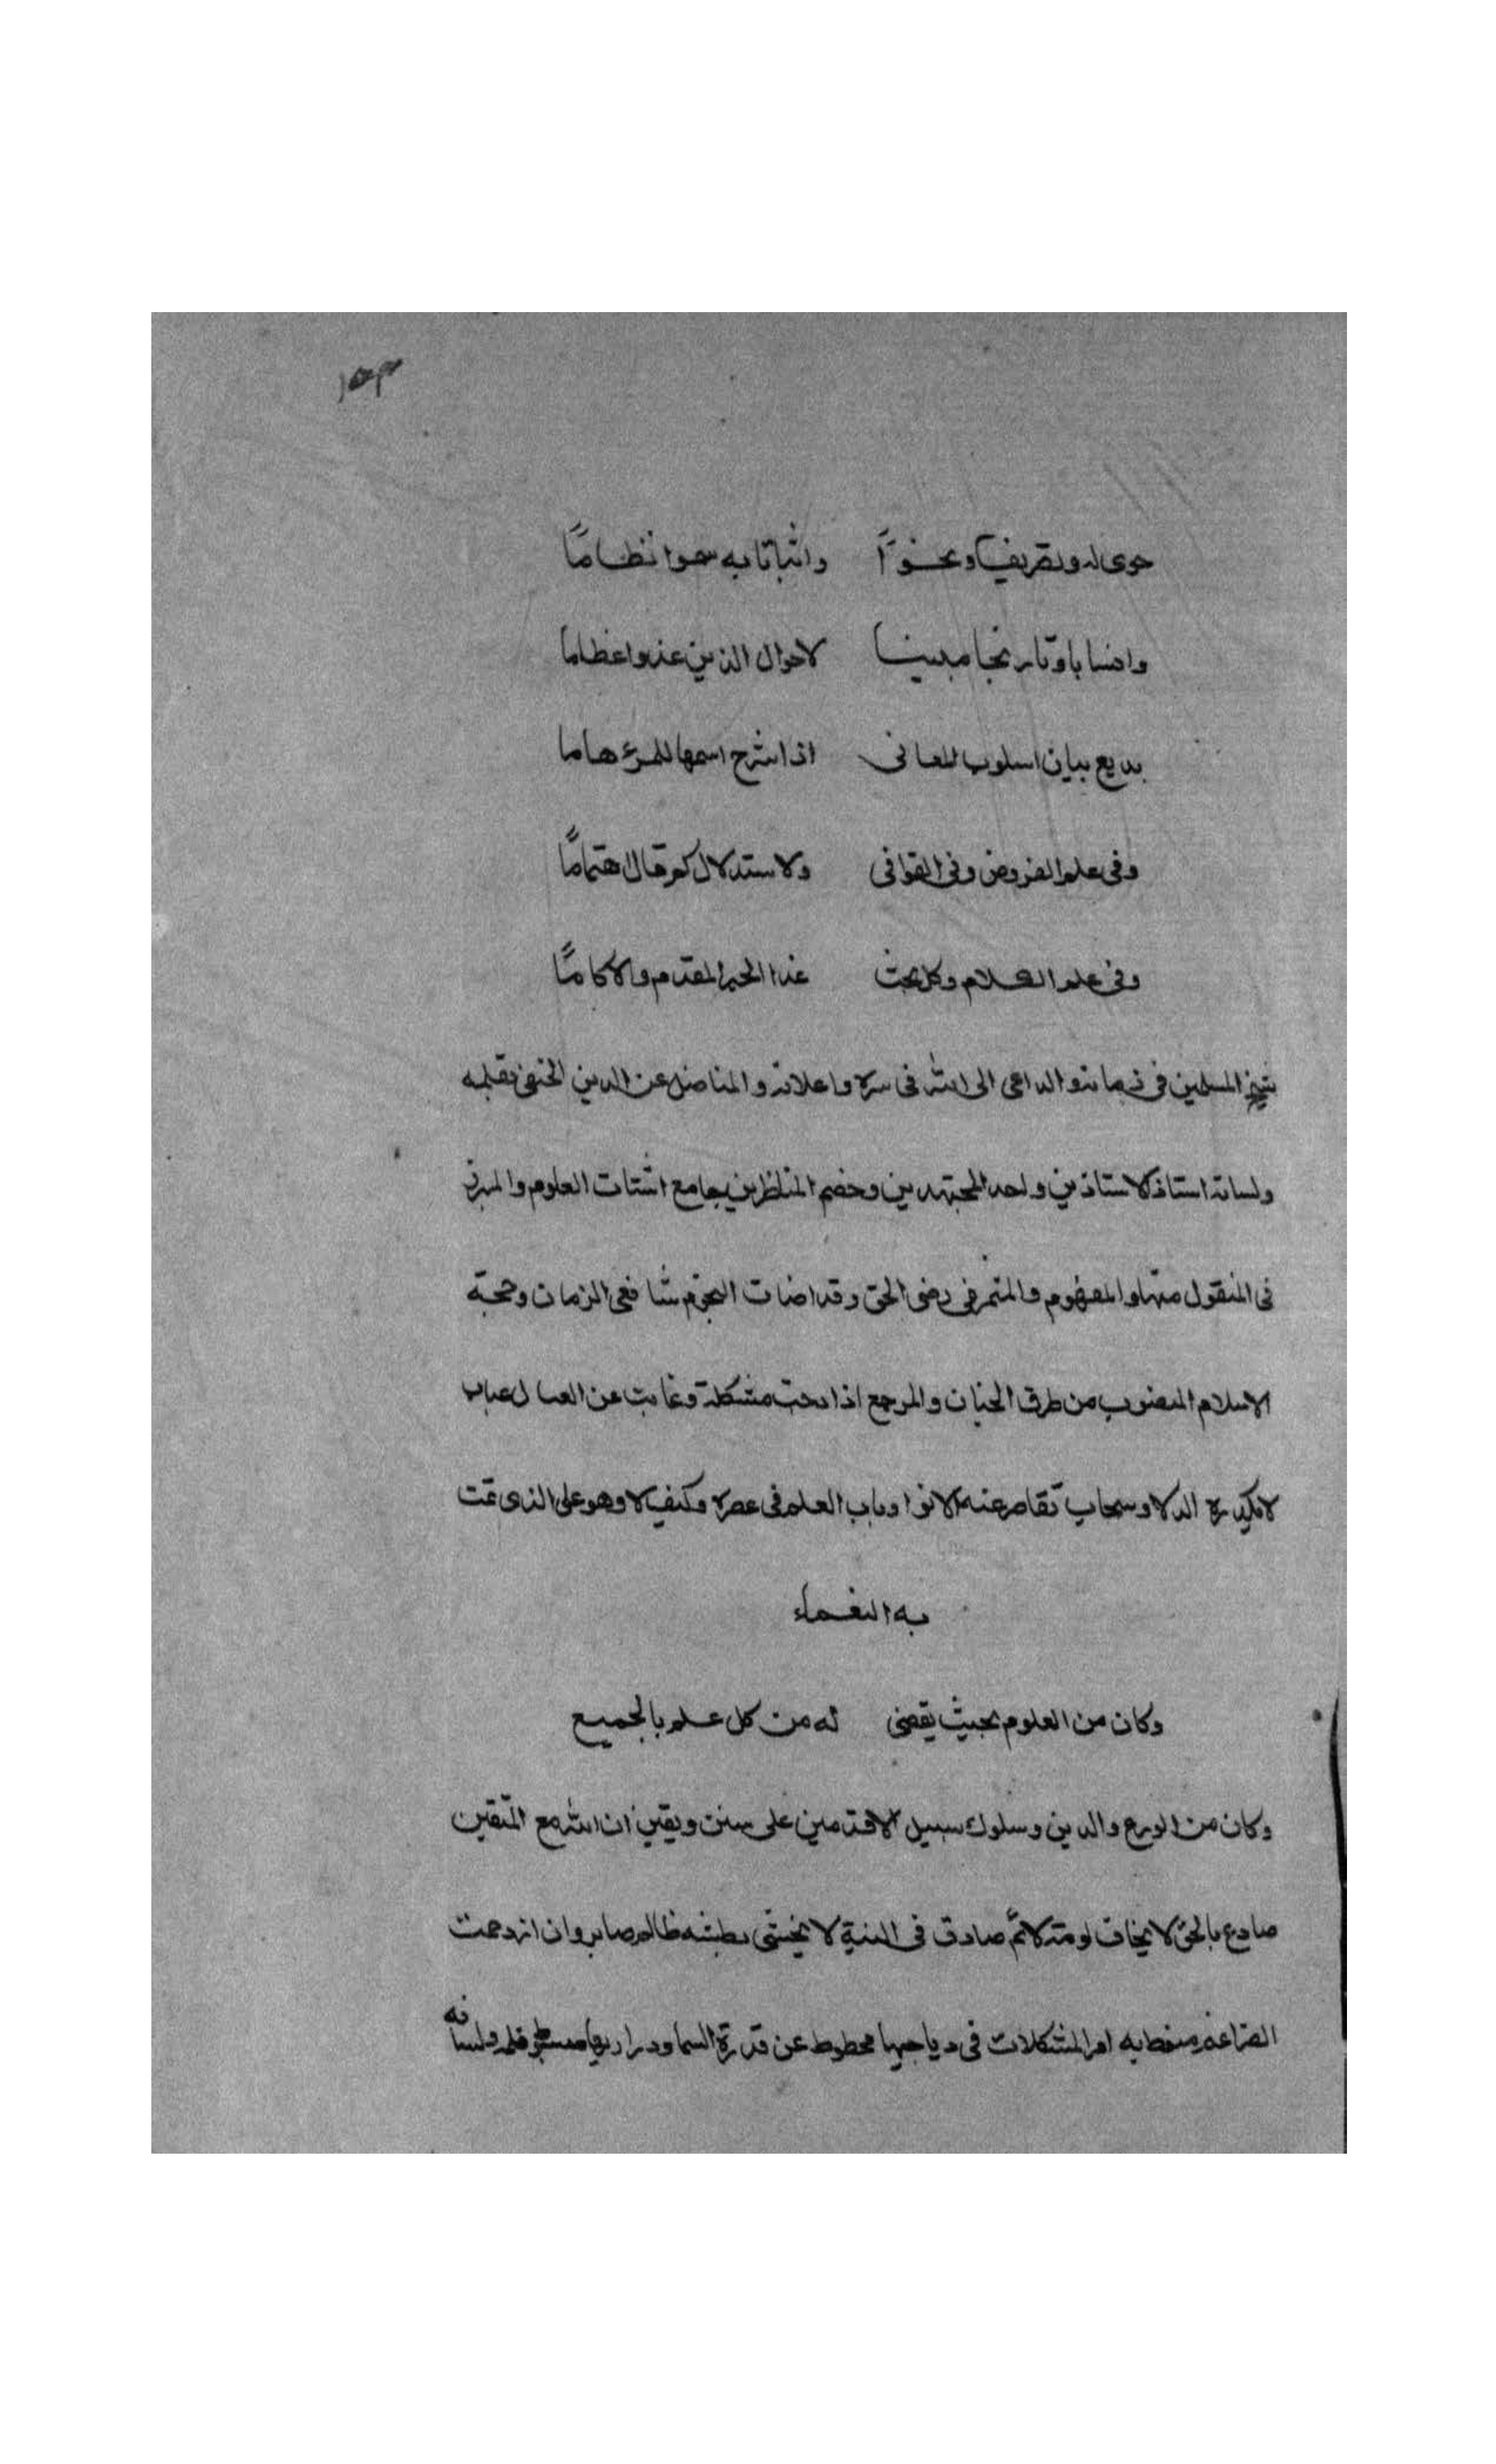 وانباتا به سموا نظامًا
وانسابا وتاريخا مبينا لاحوال الذين عدوا عظاما
بديع بيان اسلوب المعانى اذا شرح اسمها للمرء هاما
وفى علم العروض وفى القوافى ولاستدلال كم قال اهتمامًا
وفى علم الكلام وكل بحث غدا الحبر المقدم والامامًا
شيخ المسلمين فى زمانه والداعى الى الله فى سره واعلانه والمناضل عن الدين الحنفى بقلمه
ولسانه استاذ الاستاذين واحد المجتهدين وخصم المناظرين جامع اشتات العلوم والمبرز
فى المنقول منها والمفهوم والمتمر فى رضى الحق وقد اضات النجوم شافعى الزمان وحجة
الاسلام المنصوب من طرق الجنان والمرجع اذا دجت مشكلة وغابت عن العيان عباب
لا تكدره الدلا وسحاب تقاصر عنه الانوا وباب العلم فى عصره وكيف لا وهو على الذى تمت
به النعماء
وكان من العلوم بحيث يقضى له من كل علم بالجميع
وكان من الورع والدين وسلوك سبيل الاقدمين على سنن ويقين ان الله مع المتقين
صادع بالحق لا يخاف لومة لائم صادق فى النية لا يخشى بطشه ظالم صابر وان ازدحمت
الضراغم امر المشكلات فى دياجيها محطوط عن قدره السما ودراريها قلمه ولسانه